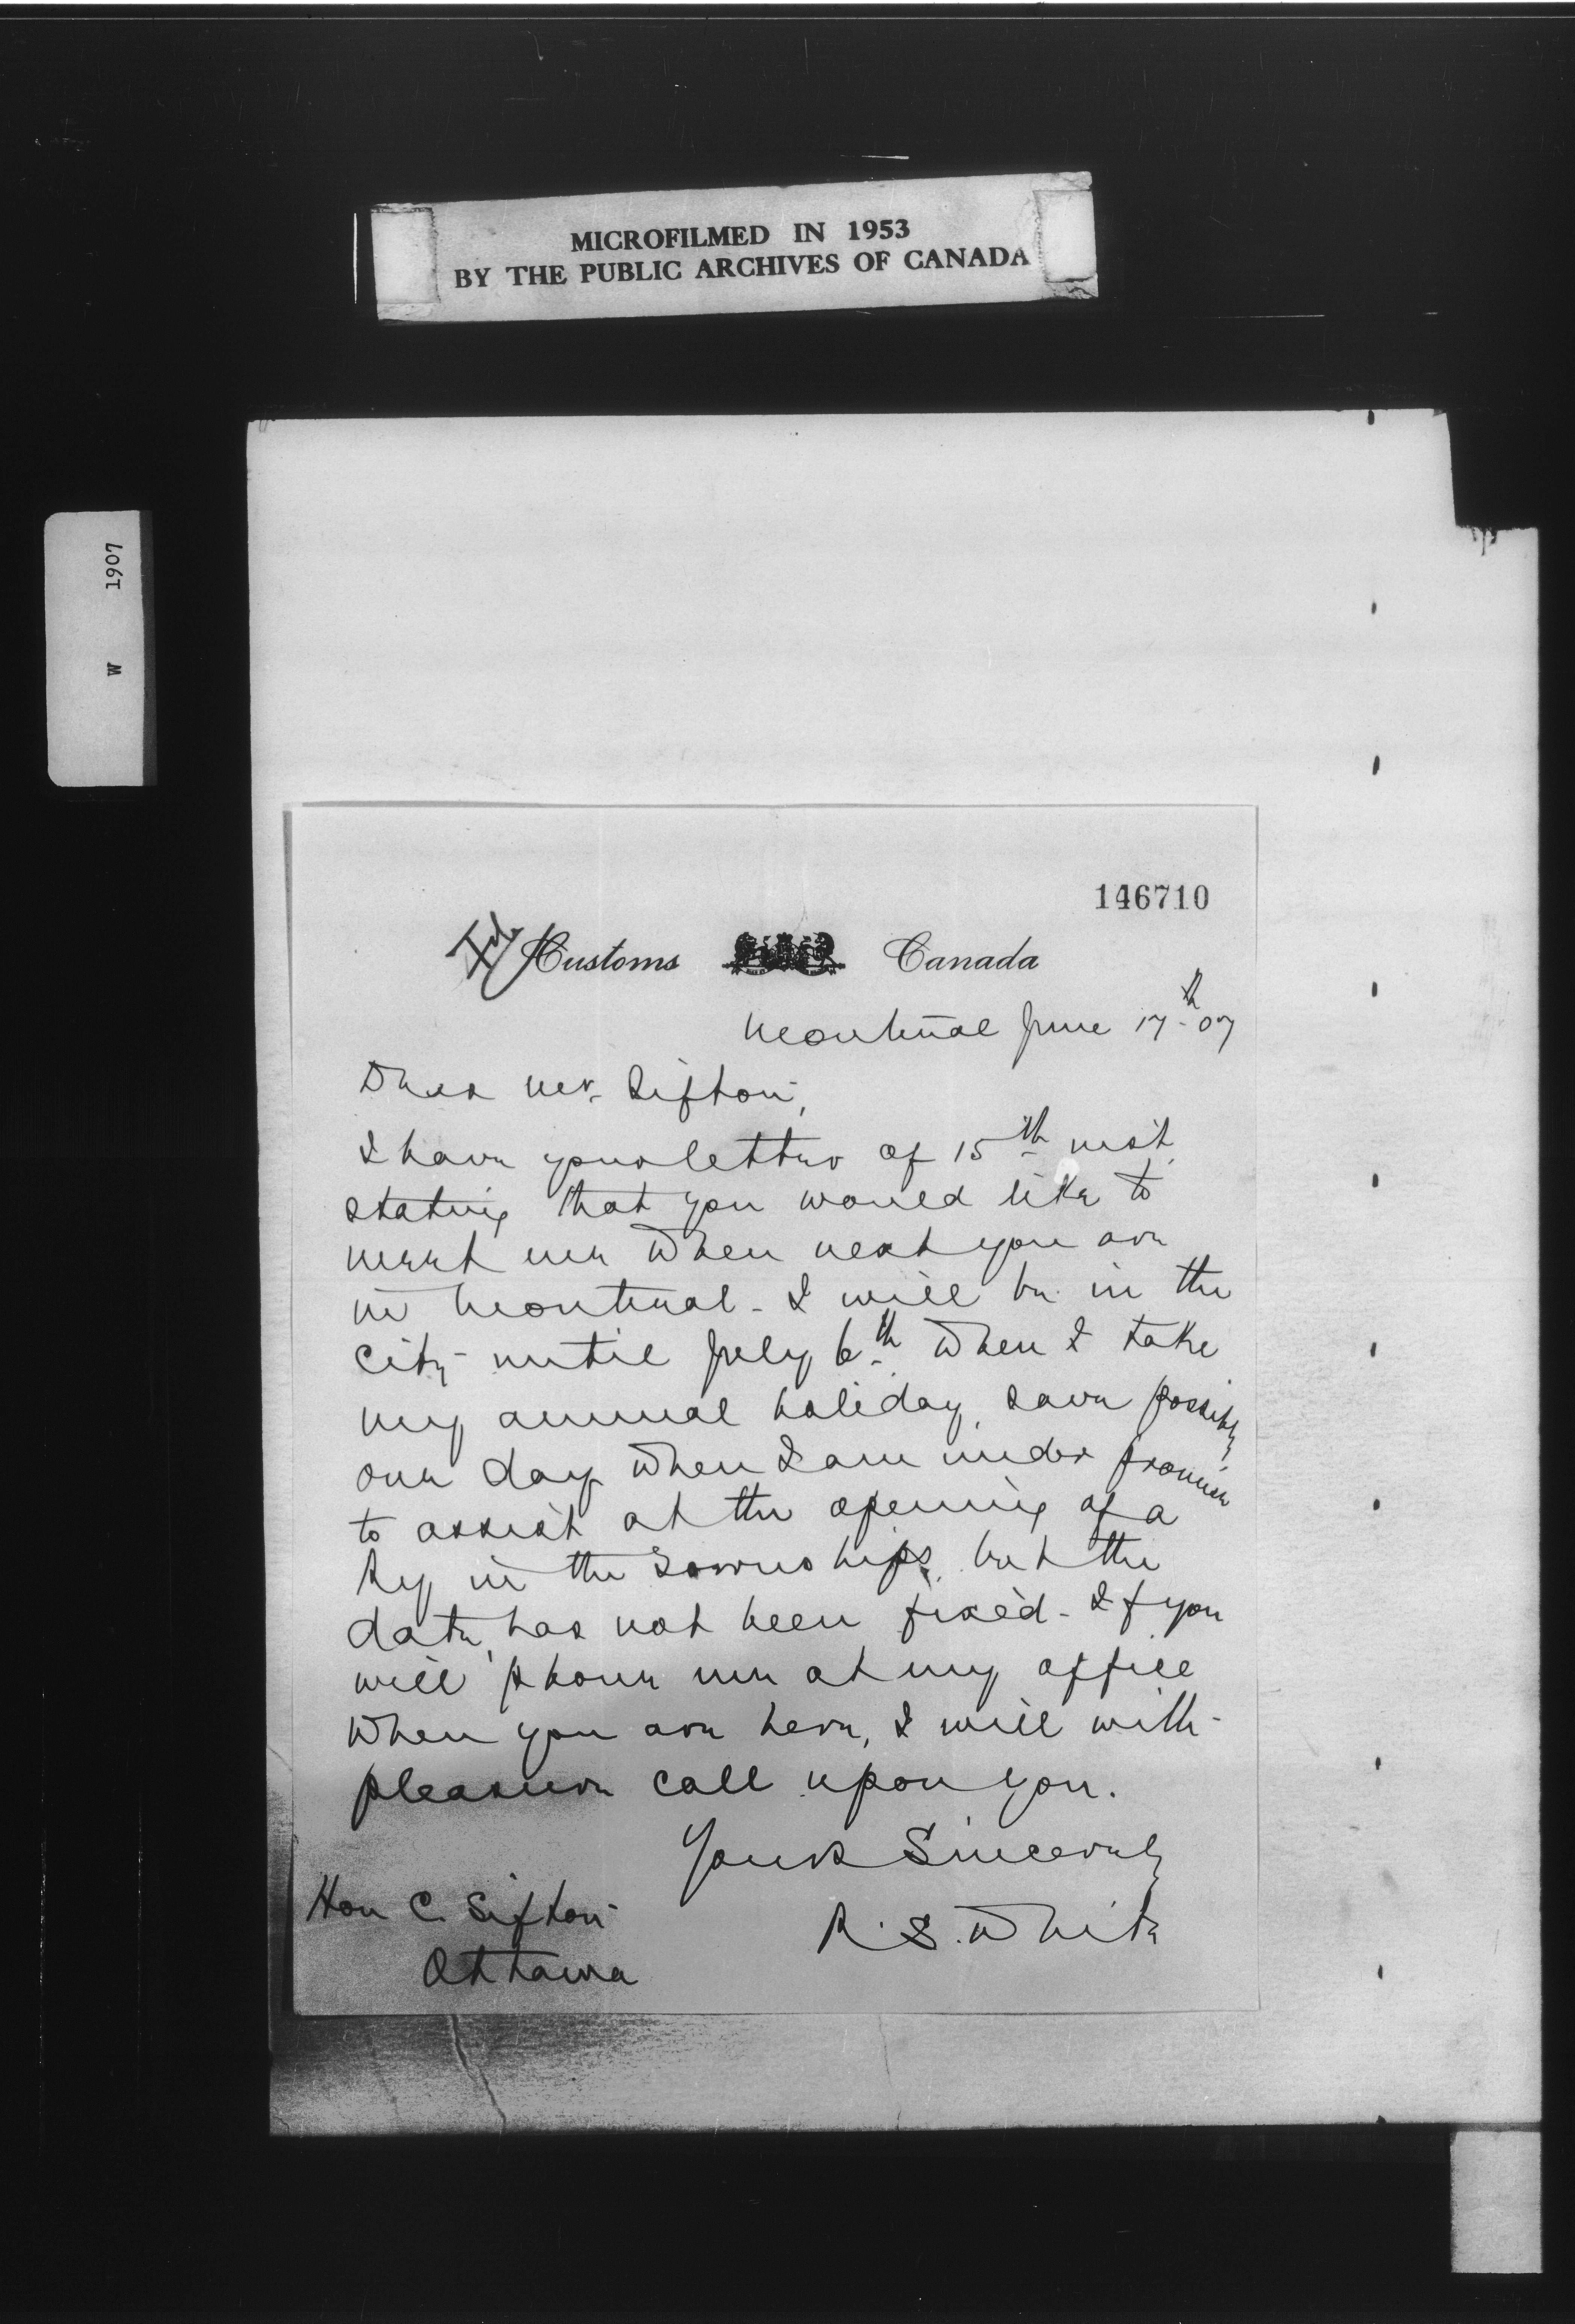 MICROFILMED IN 1953
BY THE PUBLIC ARCHIVES OF CANADA
W 1907
146710
File
Customs Canada
Montreal June 17th 07
Dear Mr. Sifton,
I have your letter of 15th inst.
stating that you would like to
meet me when next you are
in Montreal - I will be in the
city until July 6th when I take
my annual holiday, save possibly
one day when I am under promise
to assist at the opening of a
Ry in the Townships, but the
date has not been fixed - If you
will 'phone me at my office
when you are here, I will with
pleasure call upon you.
Yours Sincerely
R. S. White
Hon C. Sifton
Ottawa